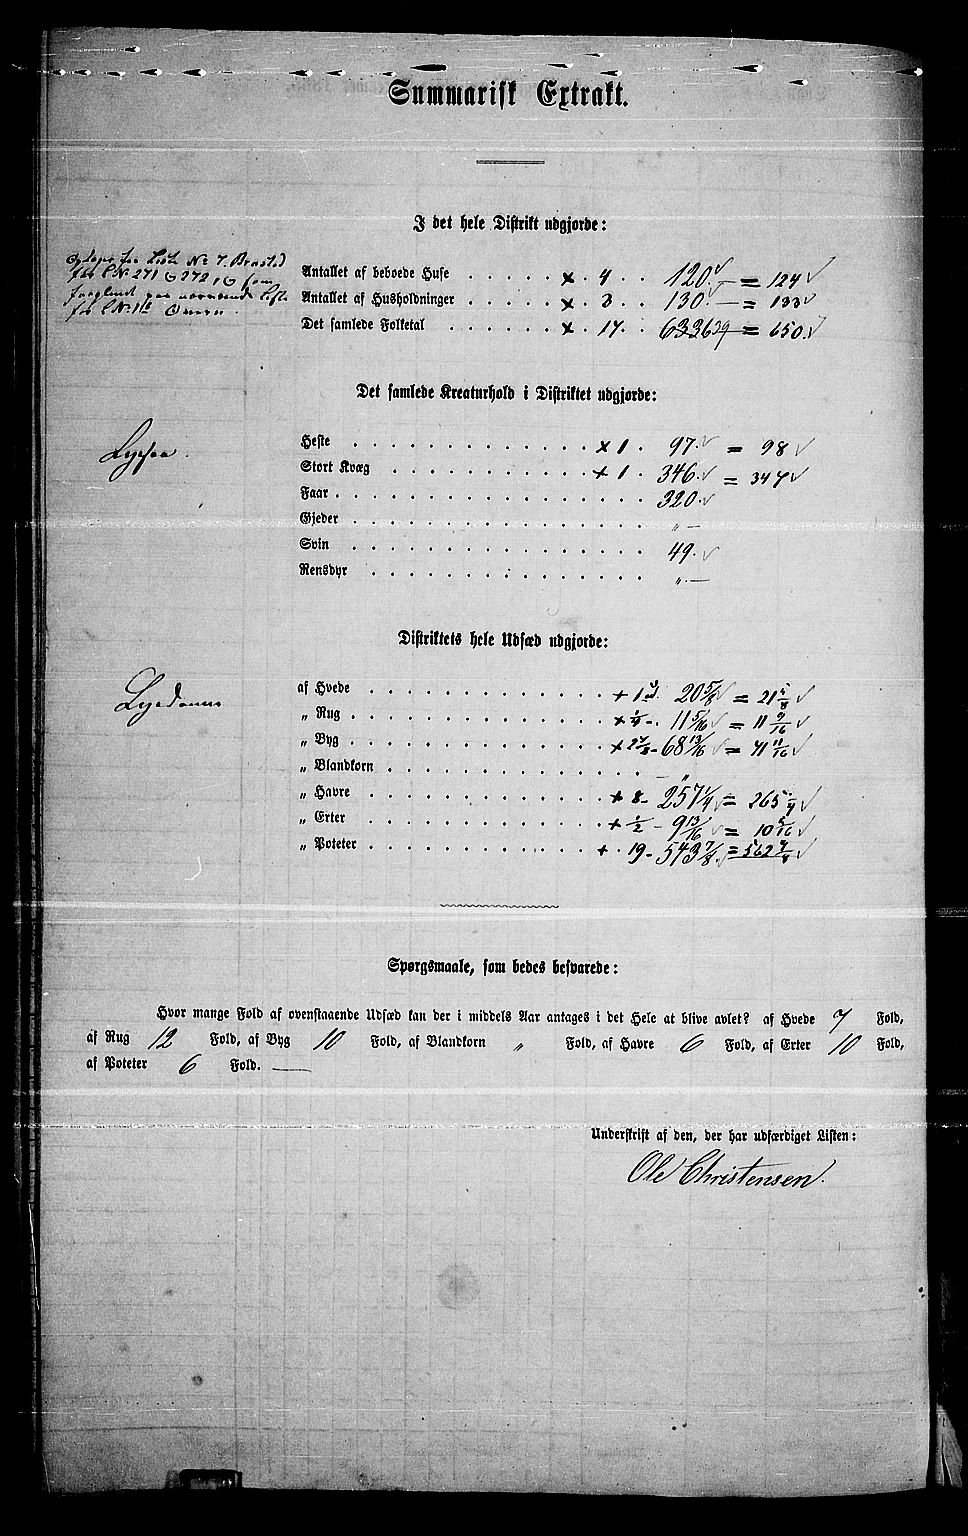 Summarisk Extrakt.
I det hele Distrikt udgjorde:
for L.No 271 & 272, & som
Antallet af beboede Huse × 4 120 = 124
Antallet af Husholdninger × 3 130 = 133
Det samlede Folketal × 17 633 = 650
Det samlede Kreaturhold i Distriktet udgjorde:
Heste × 1 97 = 98
Stort Kvæg + 1 346 = 347
Faar 320
Gjeder „
Svin 49
Rensdyr „
Distriktets hele Udsæd udgjorde:
af Hvede + 1 20 5/8 = 21 5/8
„ Rug + 1/4 11 5/16 = 11 9/16
„ Byg + 2 7/8 68 13/16 = 71 11/16
„ Blandkorn „
„ Havre + 8 257 1/4 = 265 1/4
„ Erter + 1/2 9 13/16 = 10 5/16
„ Poteter + 19 543 7/8 = 562
Spørgsmaale, som bedes besvarede:
Hvor mange Fold af ovenstaaende Udsæd kan der i middels Aar antages i det Hele at blive avlet? af Hvede 7 Fold,
af Rug 12 Fold, af Byg 10 Fold, af Blandkorn „ Fold, af Havre 6 Fold, af Erter 10 Fold,
af Poteter 6 Fold.
Underskrift af den, der har udfærdiget Listen:
Ole Christensen.